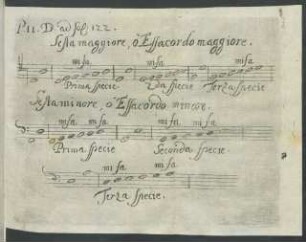 P. II. D. ad fol. 122.
Sesta maggiore, o Essacordo maggiore.
mi fa mi fa mi fa
Prima specie 2da specie Terza specie
Sesta minore, o Essacordo minore.
mi fa mi fa
Prima specie Seconda specie.
mi fa
Terza specie.